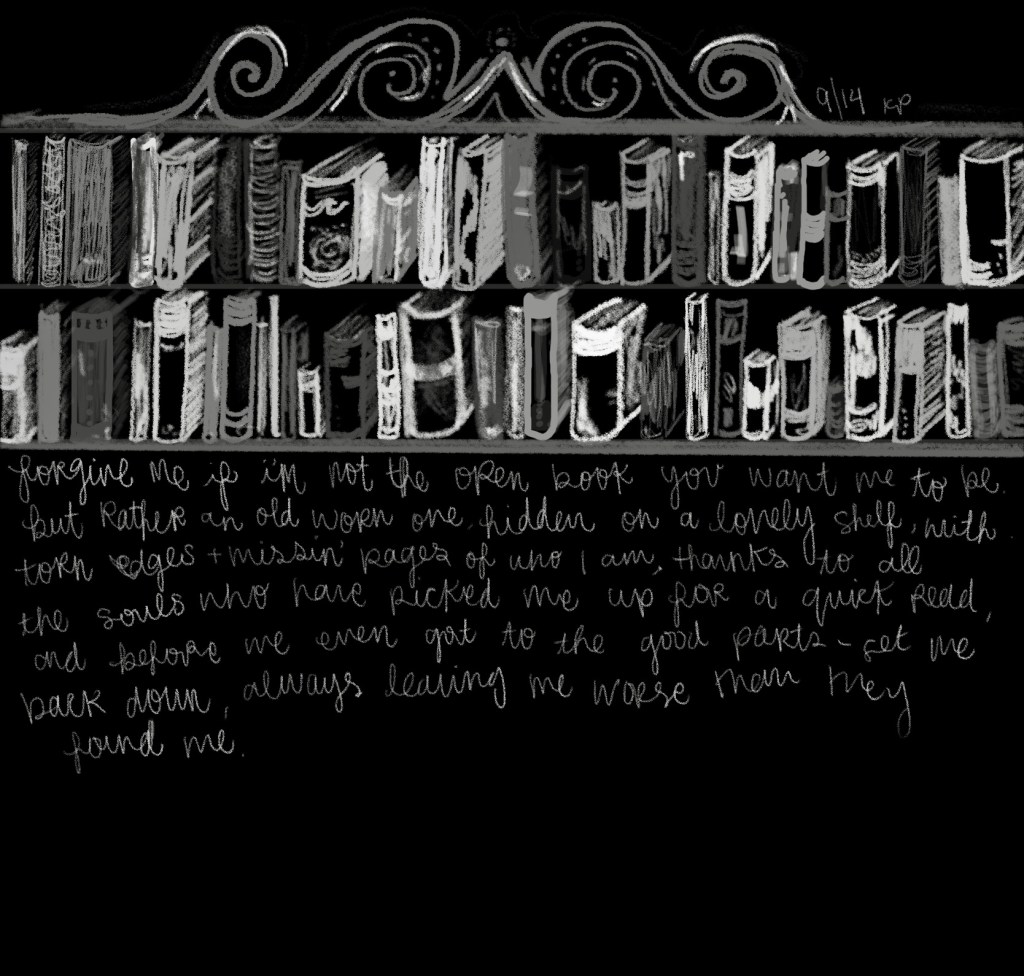 9/14 KP
forgive me if i'm not the open book you want me to be.
but Rather an old worn one, hidden on a lonely shelf, with
torn edges + missin' pages of who I am, thanks to all
the souls who have picked me up for a quick read,
and before me even got to the good parts - set me
back down, always leaving me worse than they
found me.